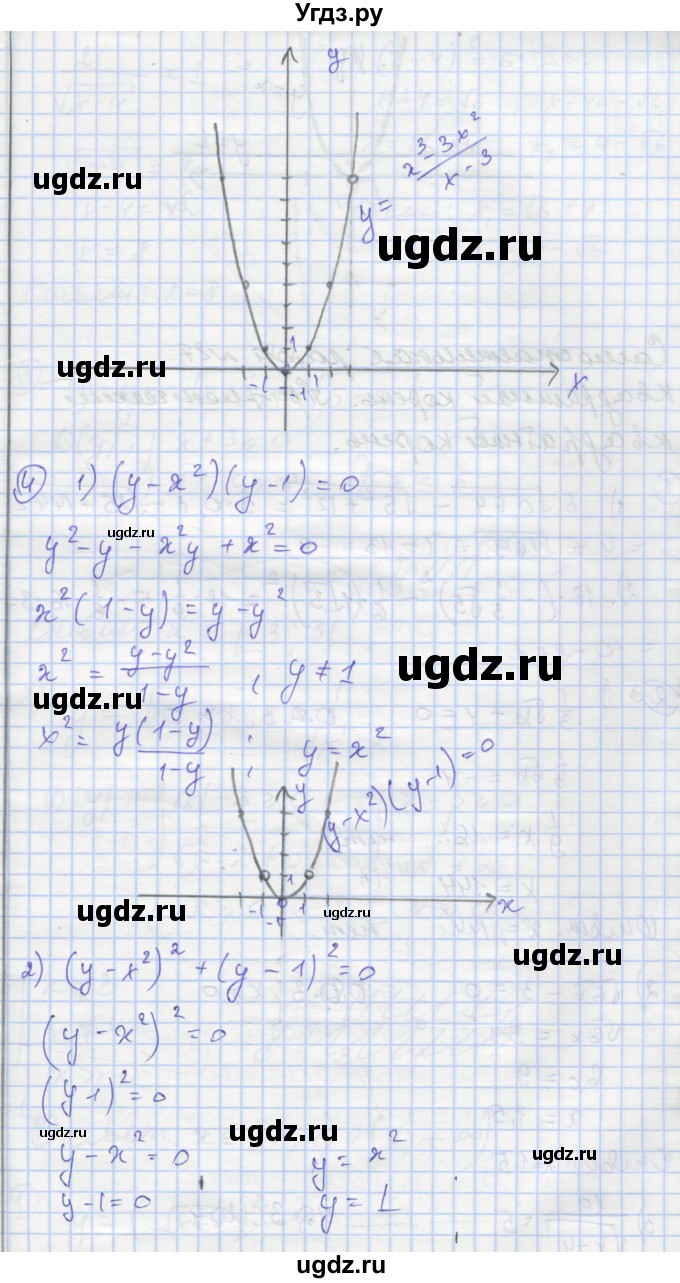 Угдз.ру
y
ugdz.ru
y = x³ - 3x² / x - 3
ugdz.ru
ugdz.ru
1
-1 1
-1
x
4 1) (y - x²)(y - 1) = 0
ugdz.ru
y² - y - x²y + x² = 0
x²(1 - y) = y - y²
x² = y - y² / 1 - y , y ≠ 1
ugdz.ru
ugdz.ru
x² = y(1 - y) / 1 - y ; y = x²
y
(y - x²)(y - 1) = 0
1
-1 0 1
-1
x
ugdz.ru
2) (y - x²)² + (y - 1)² = 0
ugdz.ru
(y - x²)² = 0
(y - 1)² = 0
ugdz.ru
ugdz.ru
y - x² = 0 y = x²
ugdz.ru
y - 1 = 0 y = 1
ugdz.ru